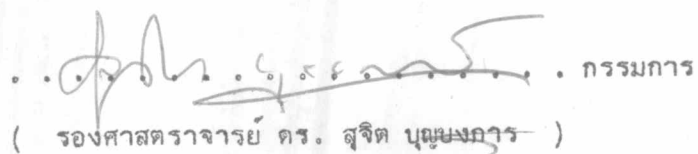 . . . . . . . . . . . . . . . . . . . กรรมการ
( รองศาสตราจารย์ ดร. สุจิต บุญบงการ )